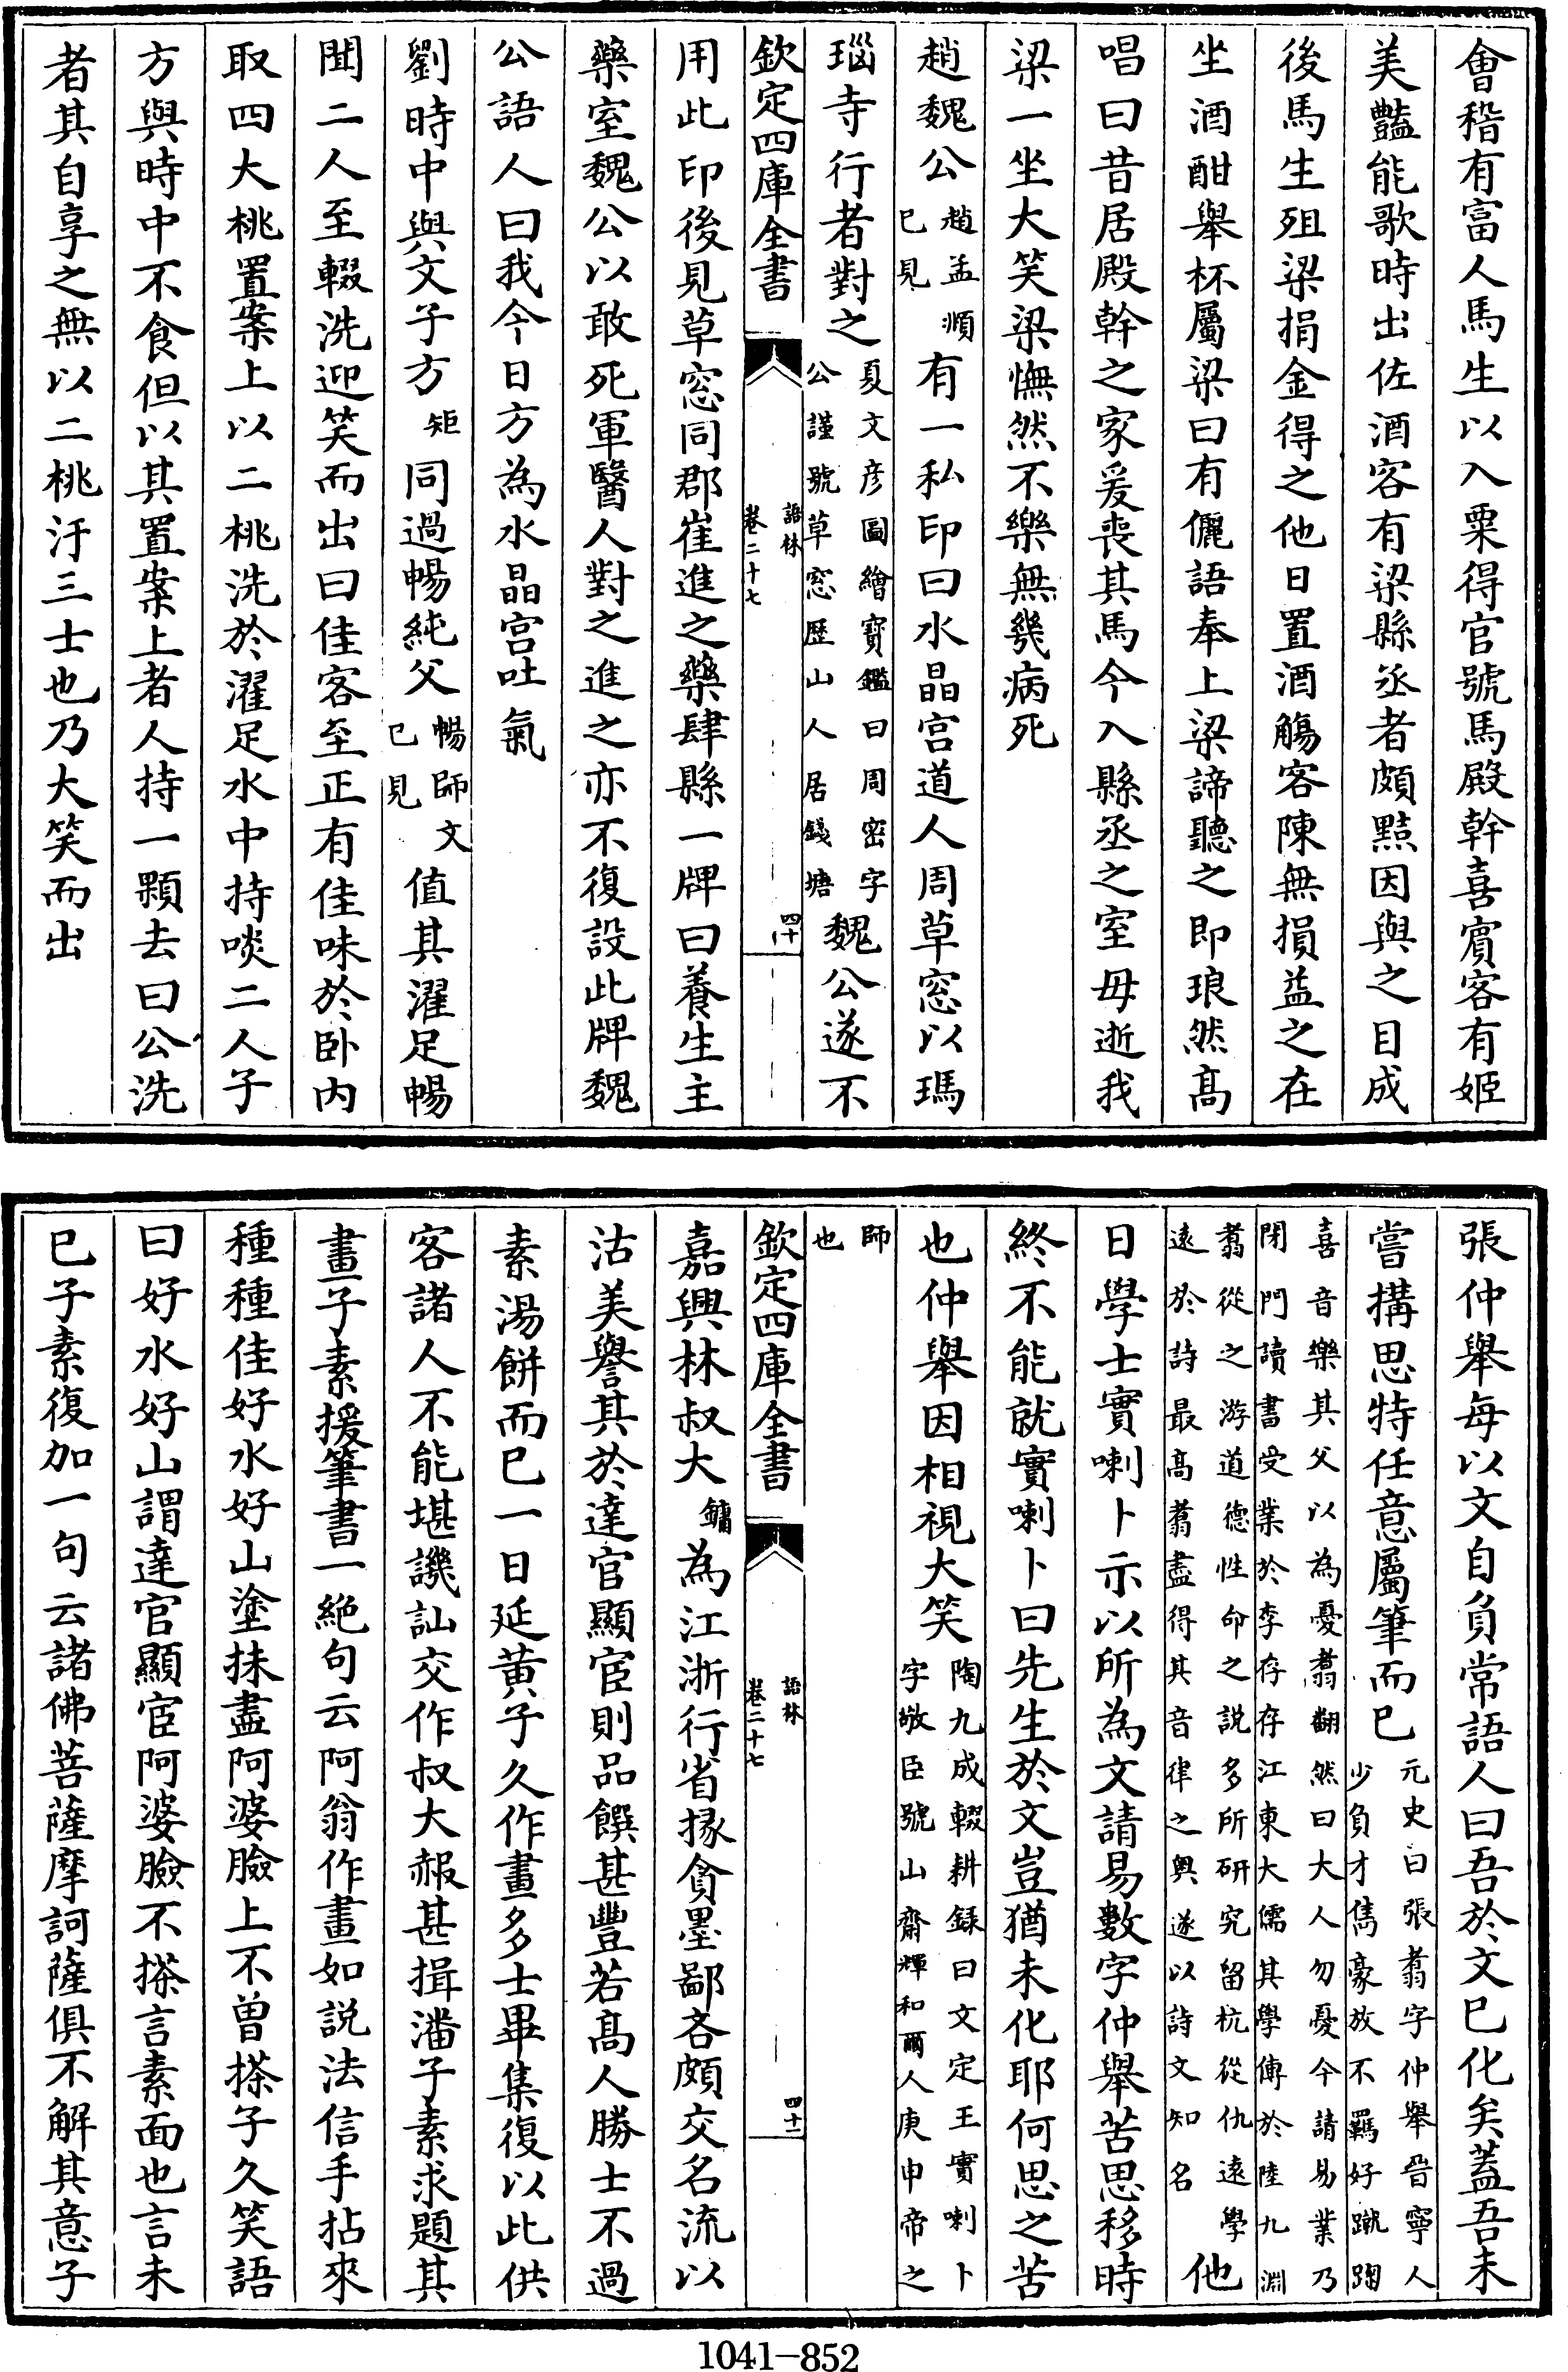 會稽有富人馬生以入粟得官號馬殿幹喜賓客有姬
美豔能歌時出佐酒客有梁縣丞者頗黠因與之目成
後馬生殂梁捐金得之他日置酒觴客陳無損益之在
坐酒酣舉杯屬梁曰有儷語奉上梁諦聽之即琅然高
唱曰昔居殿幹之家爰喪其馬今入縣丞之室毋逝我
梁一坐大笑梁憮然不樂無幾病死
趙魏公趙孟頫已見有一私印曰水晶宫道人周草窓以瑪
瑙寺行者對之夏文彦圖繪寶鑑曰周密字公謹號草窓歴山人居錢塘魏公遂不
欽定四庫全書 語林 卷二十七 四十
用此印後見草窓同郡崔進之藥肆縣一牌曰養生主
藥室魏公以敢死軍醫人對之進之亦不復設此牌魏
公語人曰我今日方為水晶宫吐氣
劉時中與文子方矩同過暢純父暢師文已見值其濯足暢
聞二人至輟洗迎笑而出曰佳客至正有佳味於卧内
取四大桃置案上以二桃洗於濯足水中持啖二人子
方與時中不食但以其置案上者人持一顆去曰公洗
者其自享之無以二桃汙三士也乃大笑而出
張仲舉每以文自負常語人曰吾於文已化矣蓋吾未
嘗搆思特任意屬筆而已元史曰張翥字仲舉晉寧人少負才雋豪放不羈好蹴踘
喜音樂其父以為憂翥翻然曰大人勿憂今請易業乃閉門讀書受業於李存存江東大儒其學傳於陸九淵
翥從之游道德性命之説多所研究留杭從仇遠學遠於詩最高翥盡得其音律之奥遂以詩文知名他
日學士實喇卜示以所為文請易數字仲舉苦思移時
終不能就實喇卜曰先生於文豈猶未化耶何思之苦
也仲舉因相視大笑陶九成輟耕録曰文定王實喇卜字敬臣號山齋輝和爾人庚申帝之
師也
欽定四庫全書 語林 卷二十七 四十一
嘉興林叔大鏞為江浙行省掾貪墨鄙吝頗交名流以
沽美譽其於達官顯宦則品饌甚豐若高人勝士不過
素湯餅而已一日延黄子久作畫多士畢集復以此供
客諸人不能堪譏訕交作叔大赧甚揖潘子素求題其
畫子素援筆書一絶句云阿翁作畫如説法信手拈來
種種佳好水好山塗抹盡阿婆臉上不曽搽子久笑語
曰好水好山謂達官顯宦阿婆臉不搽言素面也言未
已子素復加一句云諸佛菩薩摩訶薩俱不解其意子
1041-852